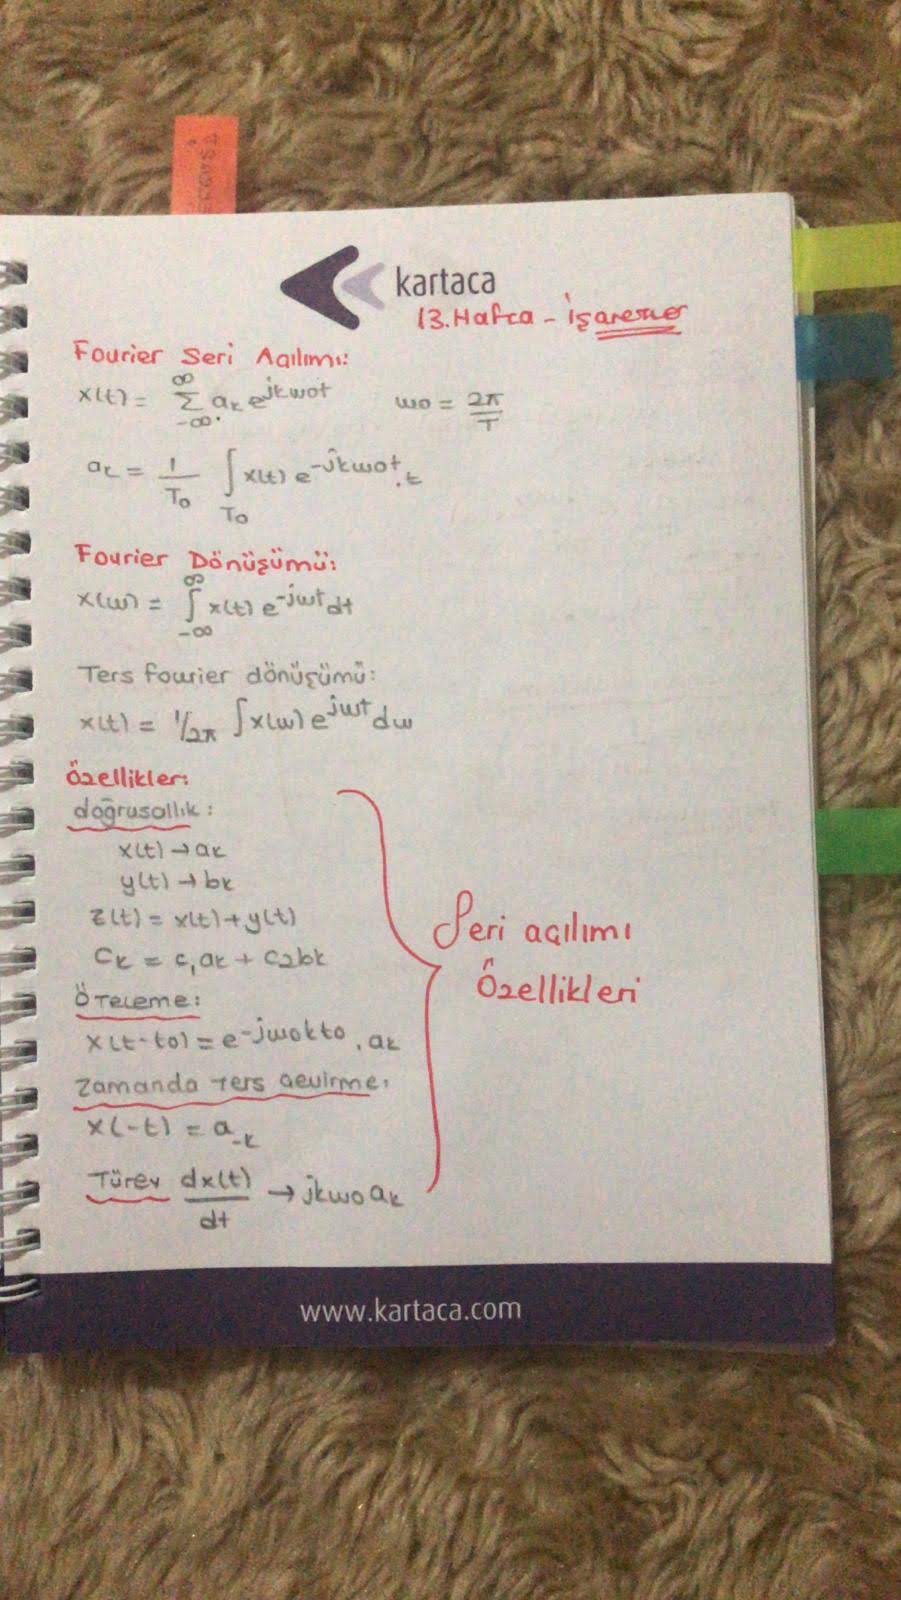 kartaca
13.Hafta - İşaretler
Fourier Seri Açılımı:
x(t) = ∞ Σ -∞ aₖ e^jkwot wo = 2π/T
aₖ = 1/To ∫To x(t) e^-jkwot . t
Fourier Dönüşümü:
x(w) = ∞ ∫ -∞ x(t) e^-jwt dt
Ters fourier dönüşümü:
x(t) = 1/2π ∫ x(w) e^jwt dw
Özellikler:
doğrusallık:
x(t) → aₖ
y(t) → bₖ
z(t) = x(t) + y(t)
Cₖ = c₁aₖ + c2bₖ
Öteleme:
x(t-to) = e^-jwokto . aₖ
Zamanda ters çevirme:
x(-t) = a₋ₖ
Türev dx(t)/dt → jkwo aₖ
Seri açılımı
Özellikleri
www.kartaca.com